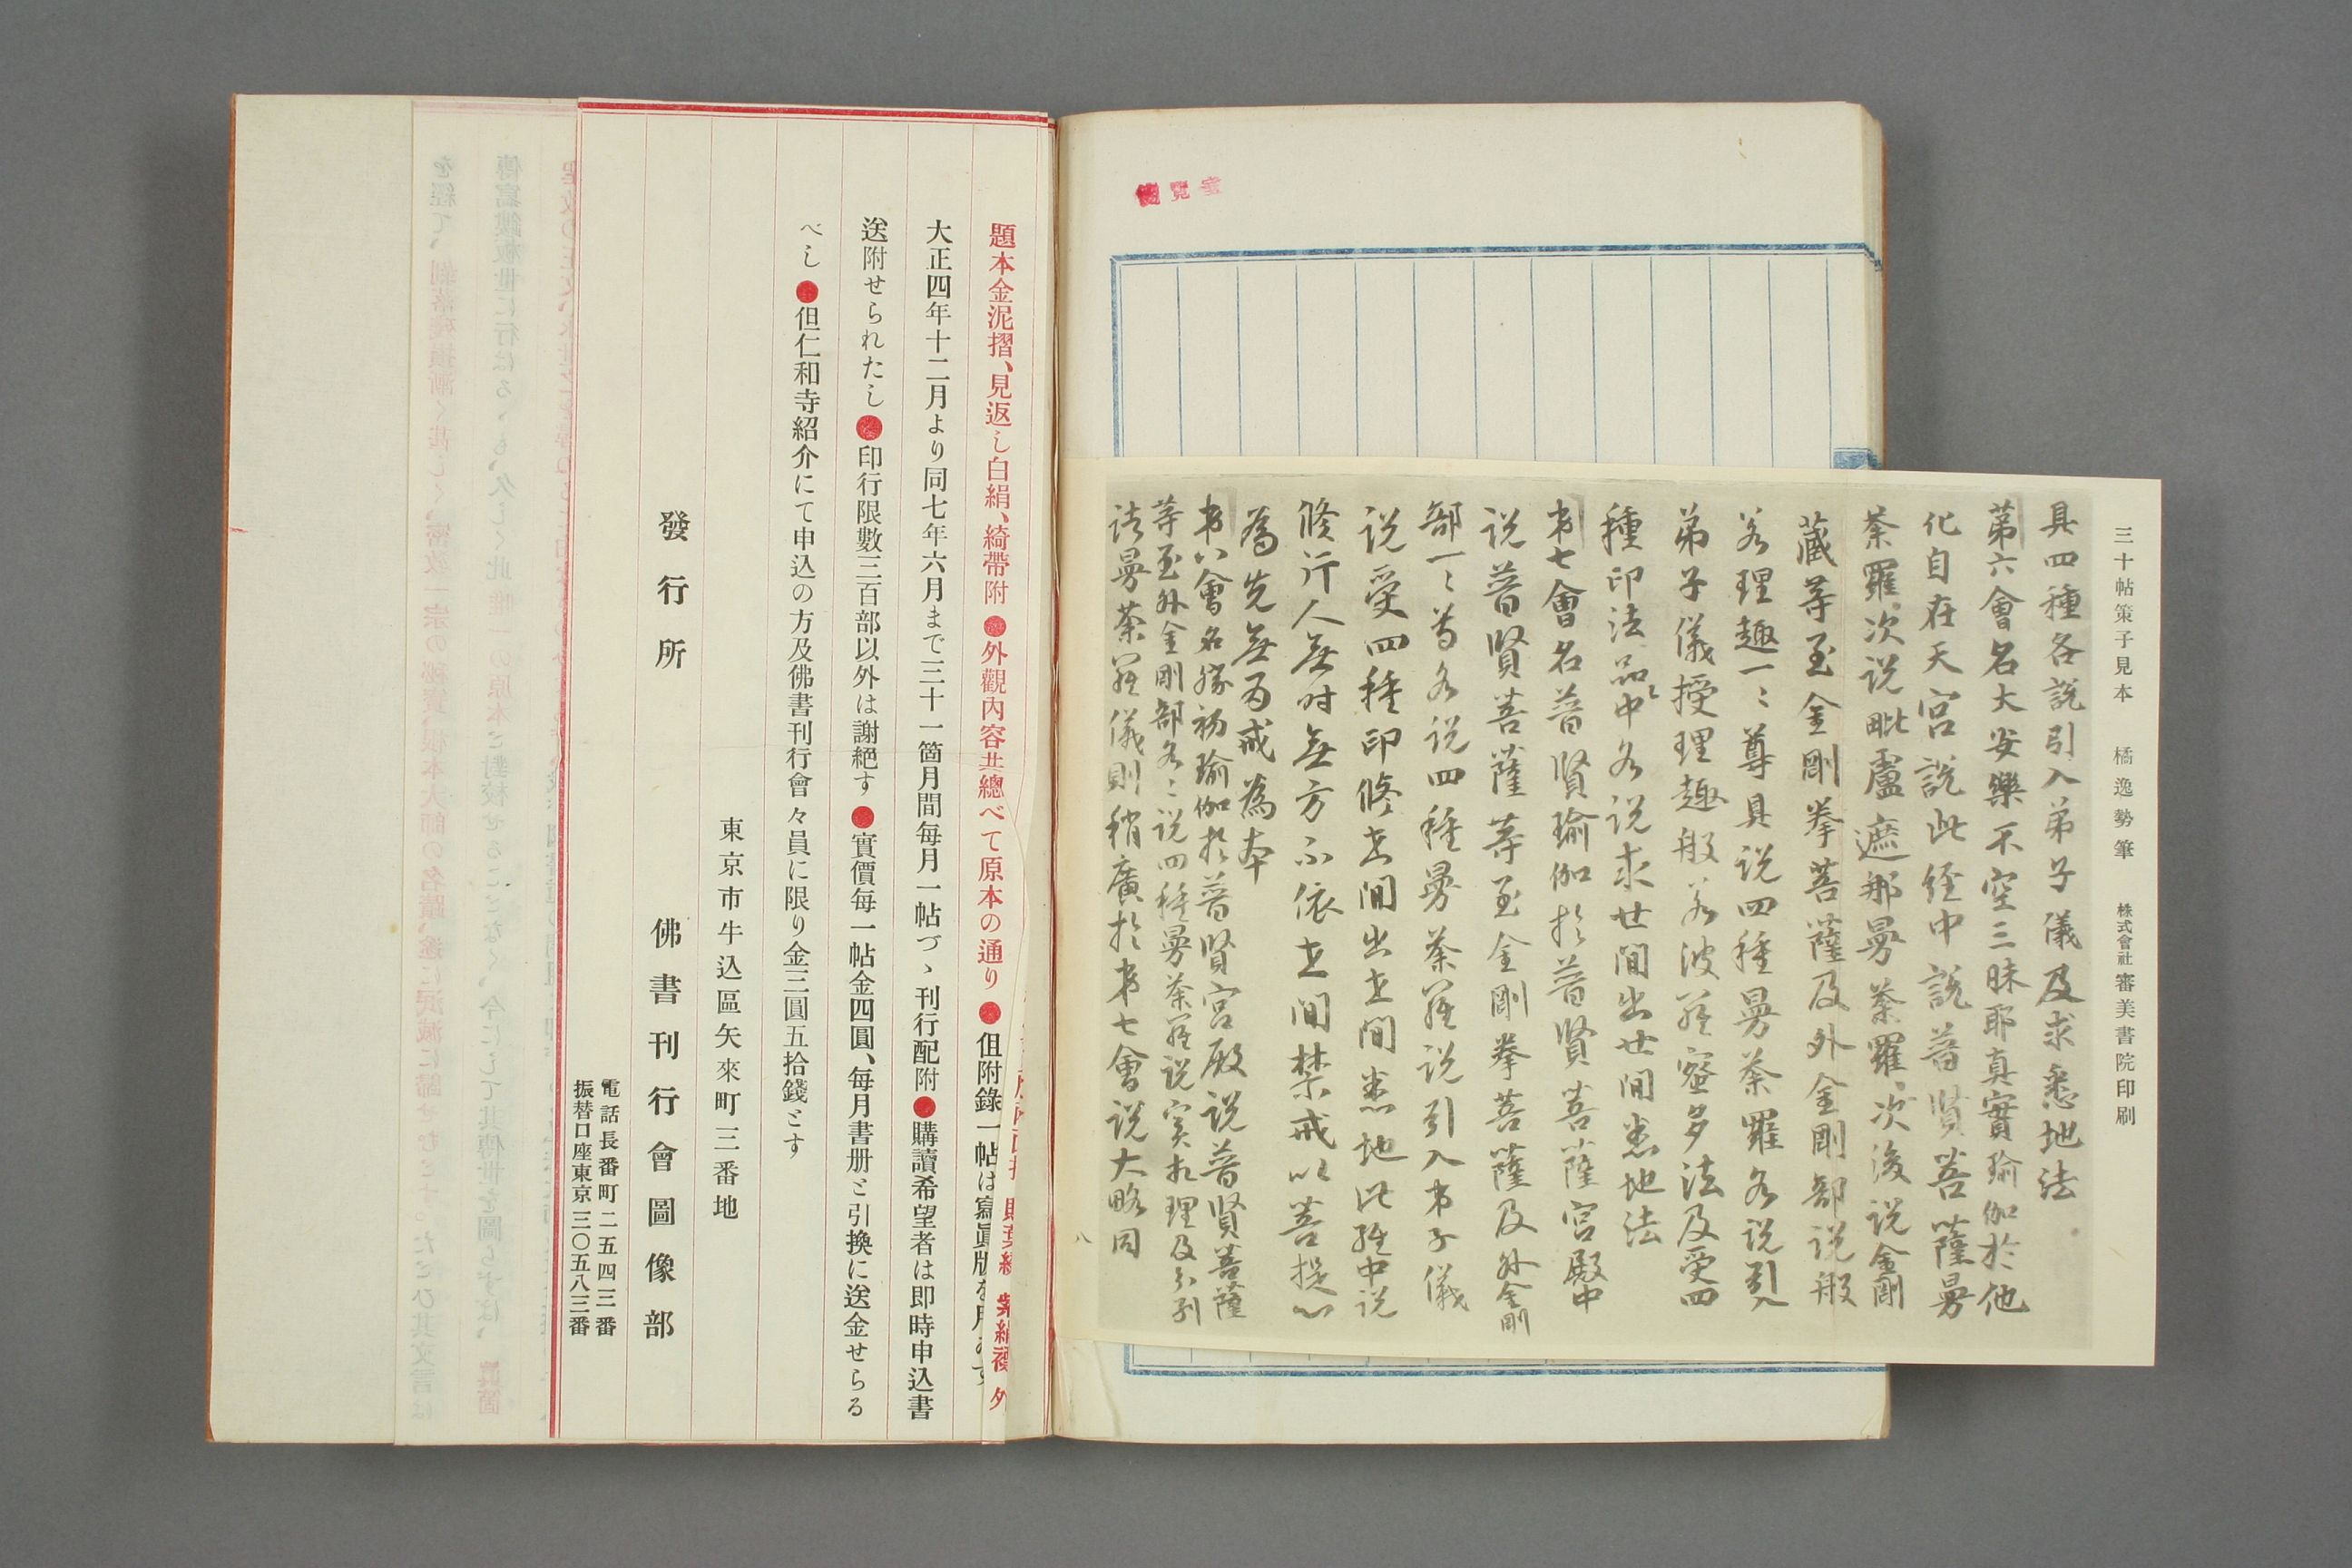 三十帖策子見本　橘逸勢筆　株式會社審美書院印刷
具四種各說引入弟子儀及求悉地法
第六會名大安樂不空三昧耶真實瑜伽於他
化自在天宮說此經中說普賢菩薩曼
荼羅次說毗盧遮那曼荼羅次後說金剛
藏等至金剛拳菩薩及外金剛部說般
若理趣一〻尊具說四種曼荼羅各說引入
弟子儀授理趣般若波羅蜜多法及受四
種印法品中各說求世間出世間悉地法
第七會名普賢瑜伽於普賢菩薩宮殿中
說普賢菩薩等至金剛拳菩薩及外金剛
部一〻尊各說四種曼荼羅說引入弟子儀
說受四種印修世間出世間悉地此經中說
修行人無時無方不依世間禁戒以菩提心
為先無為戒為本
第八會名勝初瑜伽於普賢宮殿說普賢菩薩
等至外金剛部各〻說四種曼荼羅說實相理及分別
諸曼荼羅儀則稍廣於第七會說大略同
八
閱覽室
題本金泥摺、見返し白絹、綺帶附●外觀內容共總べて原本の通り●但附錄一帖は寫眞版を用
大正四年十二月より同七年六月まで三十一箇月間每月一帖づゝ刊行配附●購讀希望者は卽時申込書
送附せられたし●印行限數三百部以外は謝絕す●實價每一帖金四圓、每月書册と引換に送金せらる
べし●但仁和寺紹介にて申込の方及佛書刊行會々員に限り金三圓五拾錢とす
東京市牛込區矢來町三番地
發行所　佛書刊行會圖像部
電話長番町二五四三番
振替口座東京三〇五八三番